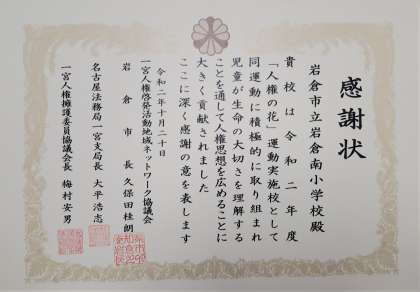 感謝状
岩倉市立岩倉南小学校殿
貴校は令和二年度
「人権の花」運動実施校として
同運動に積極的に取り組まれ
児童が生命の大切さを理解する
ことを通して人権思想を広めることに
大きく貢献されました
ここに深く感謝の意を表します
令和二年十月二十日
一宮人権啓発活動地域ネットワーク協議会
岩倉市長 久保田桂朗
名古屋法務局一宮支局長 大平浩志
一宮人権擁護委員協議会長 梅村安男